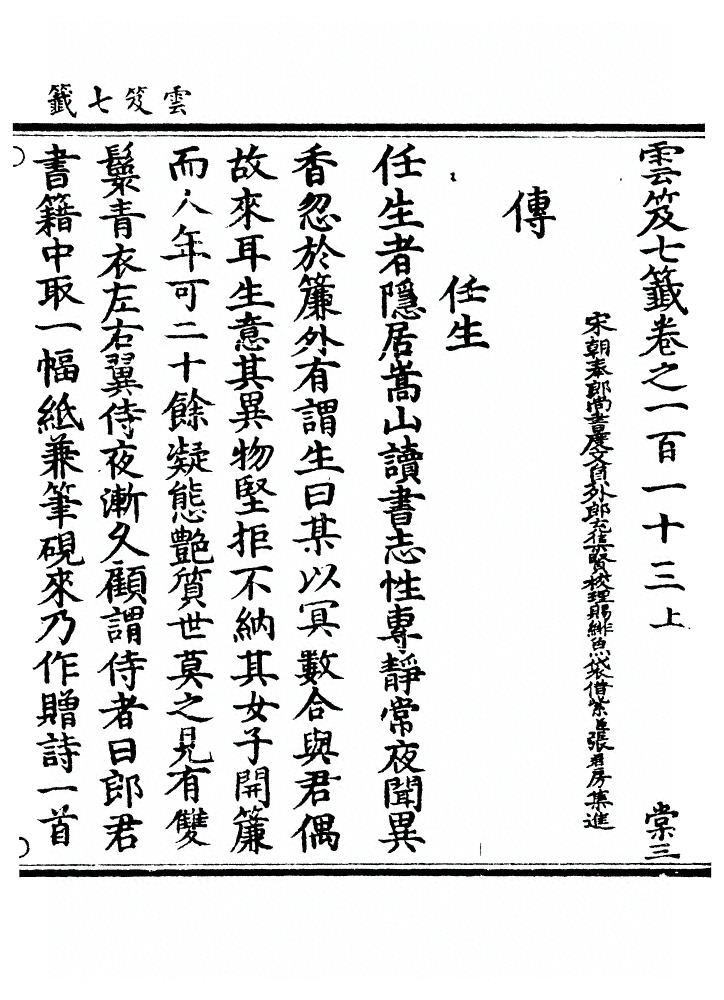 雲笈七籤
雲笈七籤卷之一百一十三上
棠三
宋朝奉郎尚書度支員外郎充集賢校理賜緋魚袋借紫臣張君房集進
傳
任生
任生者隱居嵩山讀書志性專靜常夜聞異
香忽於簾外有謂生曰某以冥數合與君偶
故來耳生意其異物堅拒不納其女子開簾
而入年可二十餘凝態艷質世莫之見有雙
鬟青衣左右翼侍夜漸久顧謂侍者曰郎君
書籍中取一幅紙兼筆硯來乃作贈詩一首